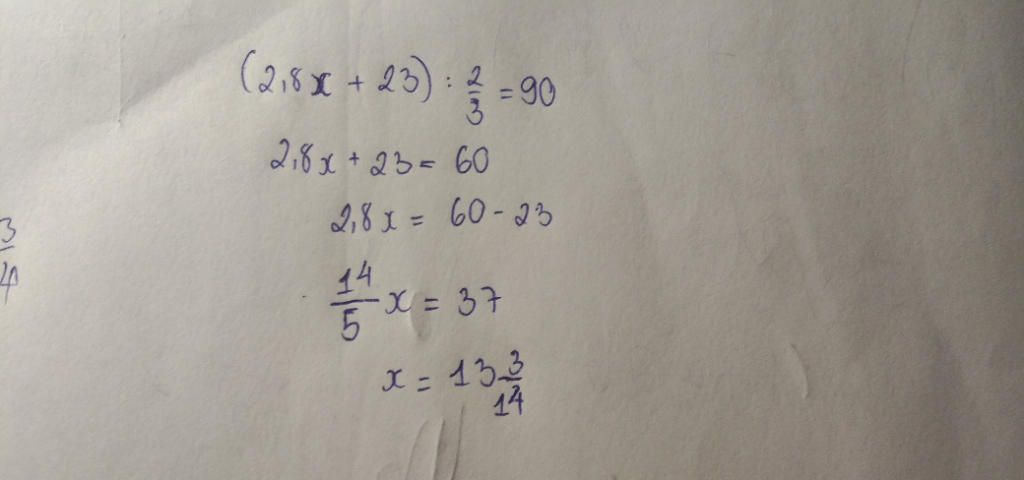 (2,8x + 23) : 2/3 = 90
2,8x + 23 = 60
2,8x = 60 - 23
3/4
14/5 x = 37
x = 13 3/14